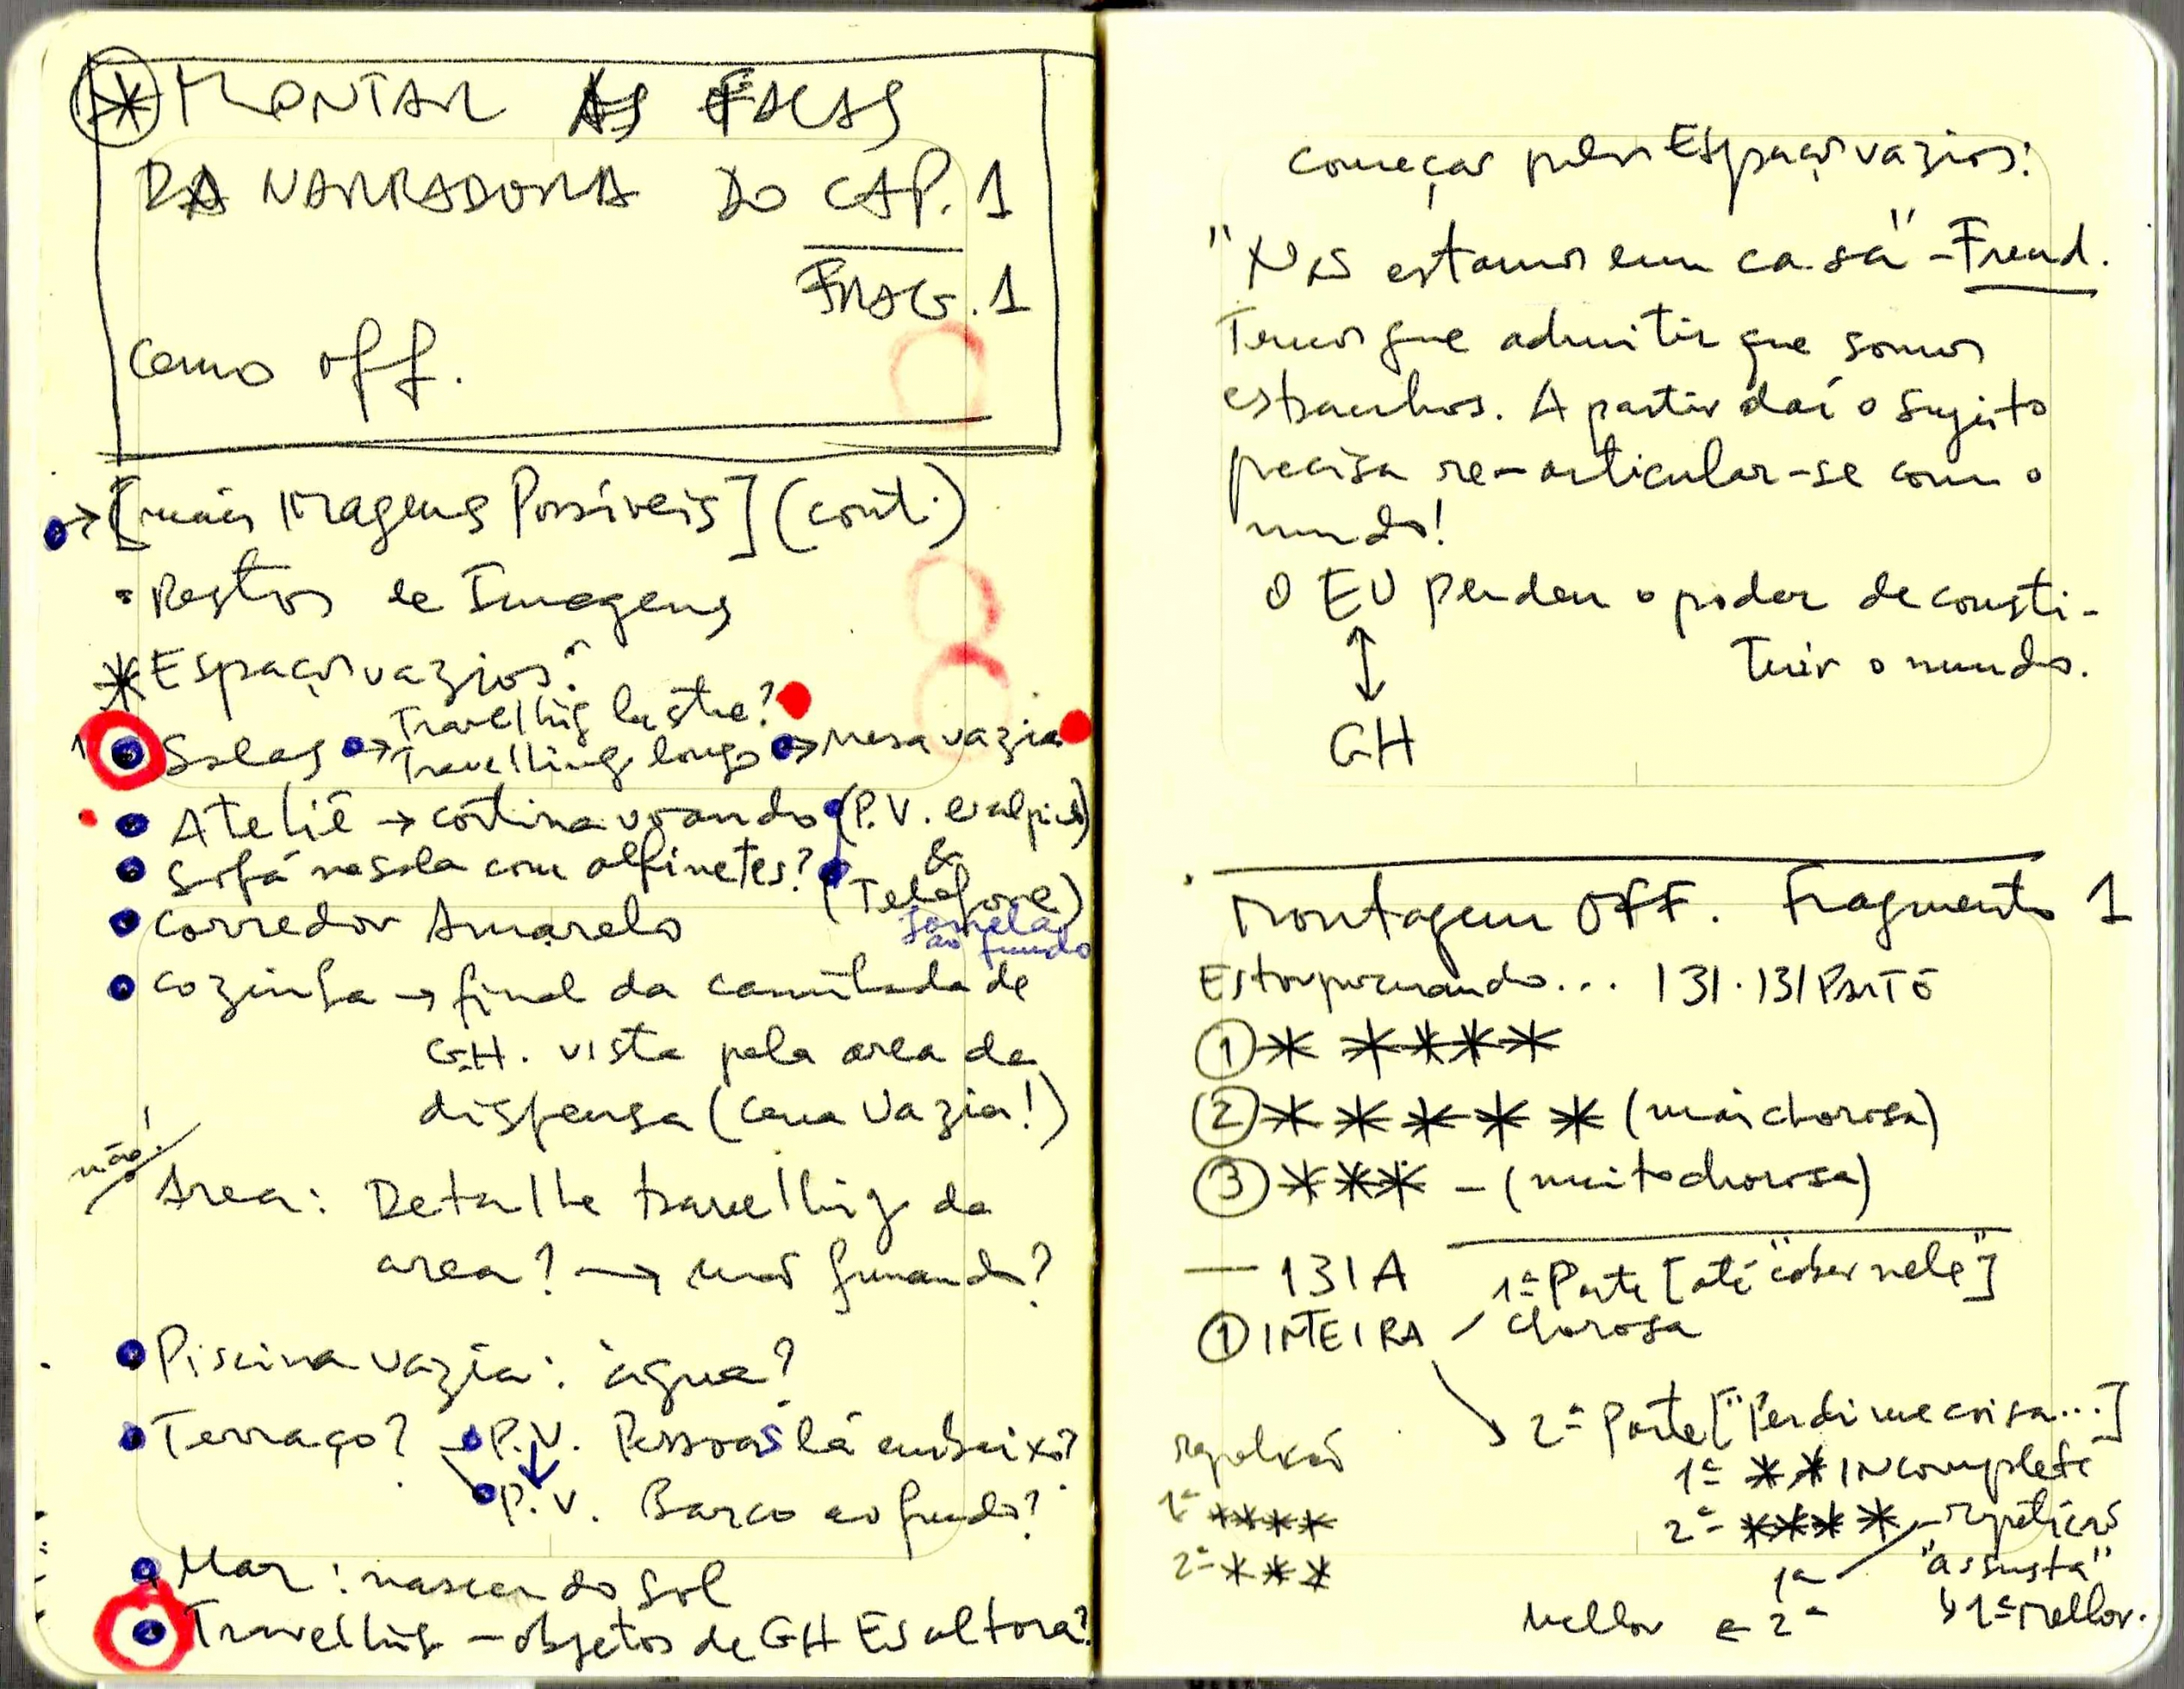 * MONTAR AS FALAS
DA NARRADORA DO CAP. 1
FRAG. 1
como off.
→ [mais Imagens Possíveis] (cont.)
• Restos de Imagens
* Espaços vazios:
Travelling lustre?
1 Salas → Travelling longo → mesa vazia
Ateliê → cortina voando (P.V. esculpida)
&
Sofá na sala com alfinetes? (Telefone)
Janela
ao fundo
Corredor Amarelo
Cozinha → final da caminhada de
GH. vista pela area da
dispensa (cena vazia!)
não!
Area: Detalhe travelling da
area? → mão fumando?
Piscina vazia: água?
Terraço? → P.V. Pessoas lá embaixo?
P.V. Barco ao fundo?
Mar: nascer do sol
Travelling - objetos de GH Escultora?
começar pelos Espaços vazios:
"Nós estamos em casa" - Freud.
Temos que admitir que somos
estranhos. A partir daí o sujeito
precisa re-articular-se com o
mundo!
O EU perdeu o poder de consti-
tuir o mundo.
↕
GH
Montagem OFF. Fragmento 1
Estou procurando... 131. 131 PARTE
① * * * * *
② * * * * * (mais chorosa)
③ * * * - (muito chorosa)
— 131A 1ª Parte [até "caber nele"]
① INTEIRA chorosa
2ª Parte ["Perdi uma coisa...]
1ª * * INcompleta
2ª * * * * - repetição
"assusta"
1ª ↳ 1ª Melhor.
Melhor ← 2ª
1ª * * * *
2ª * * *